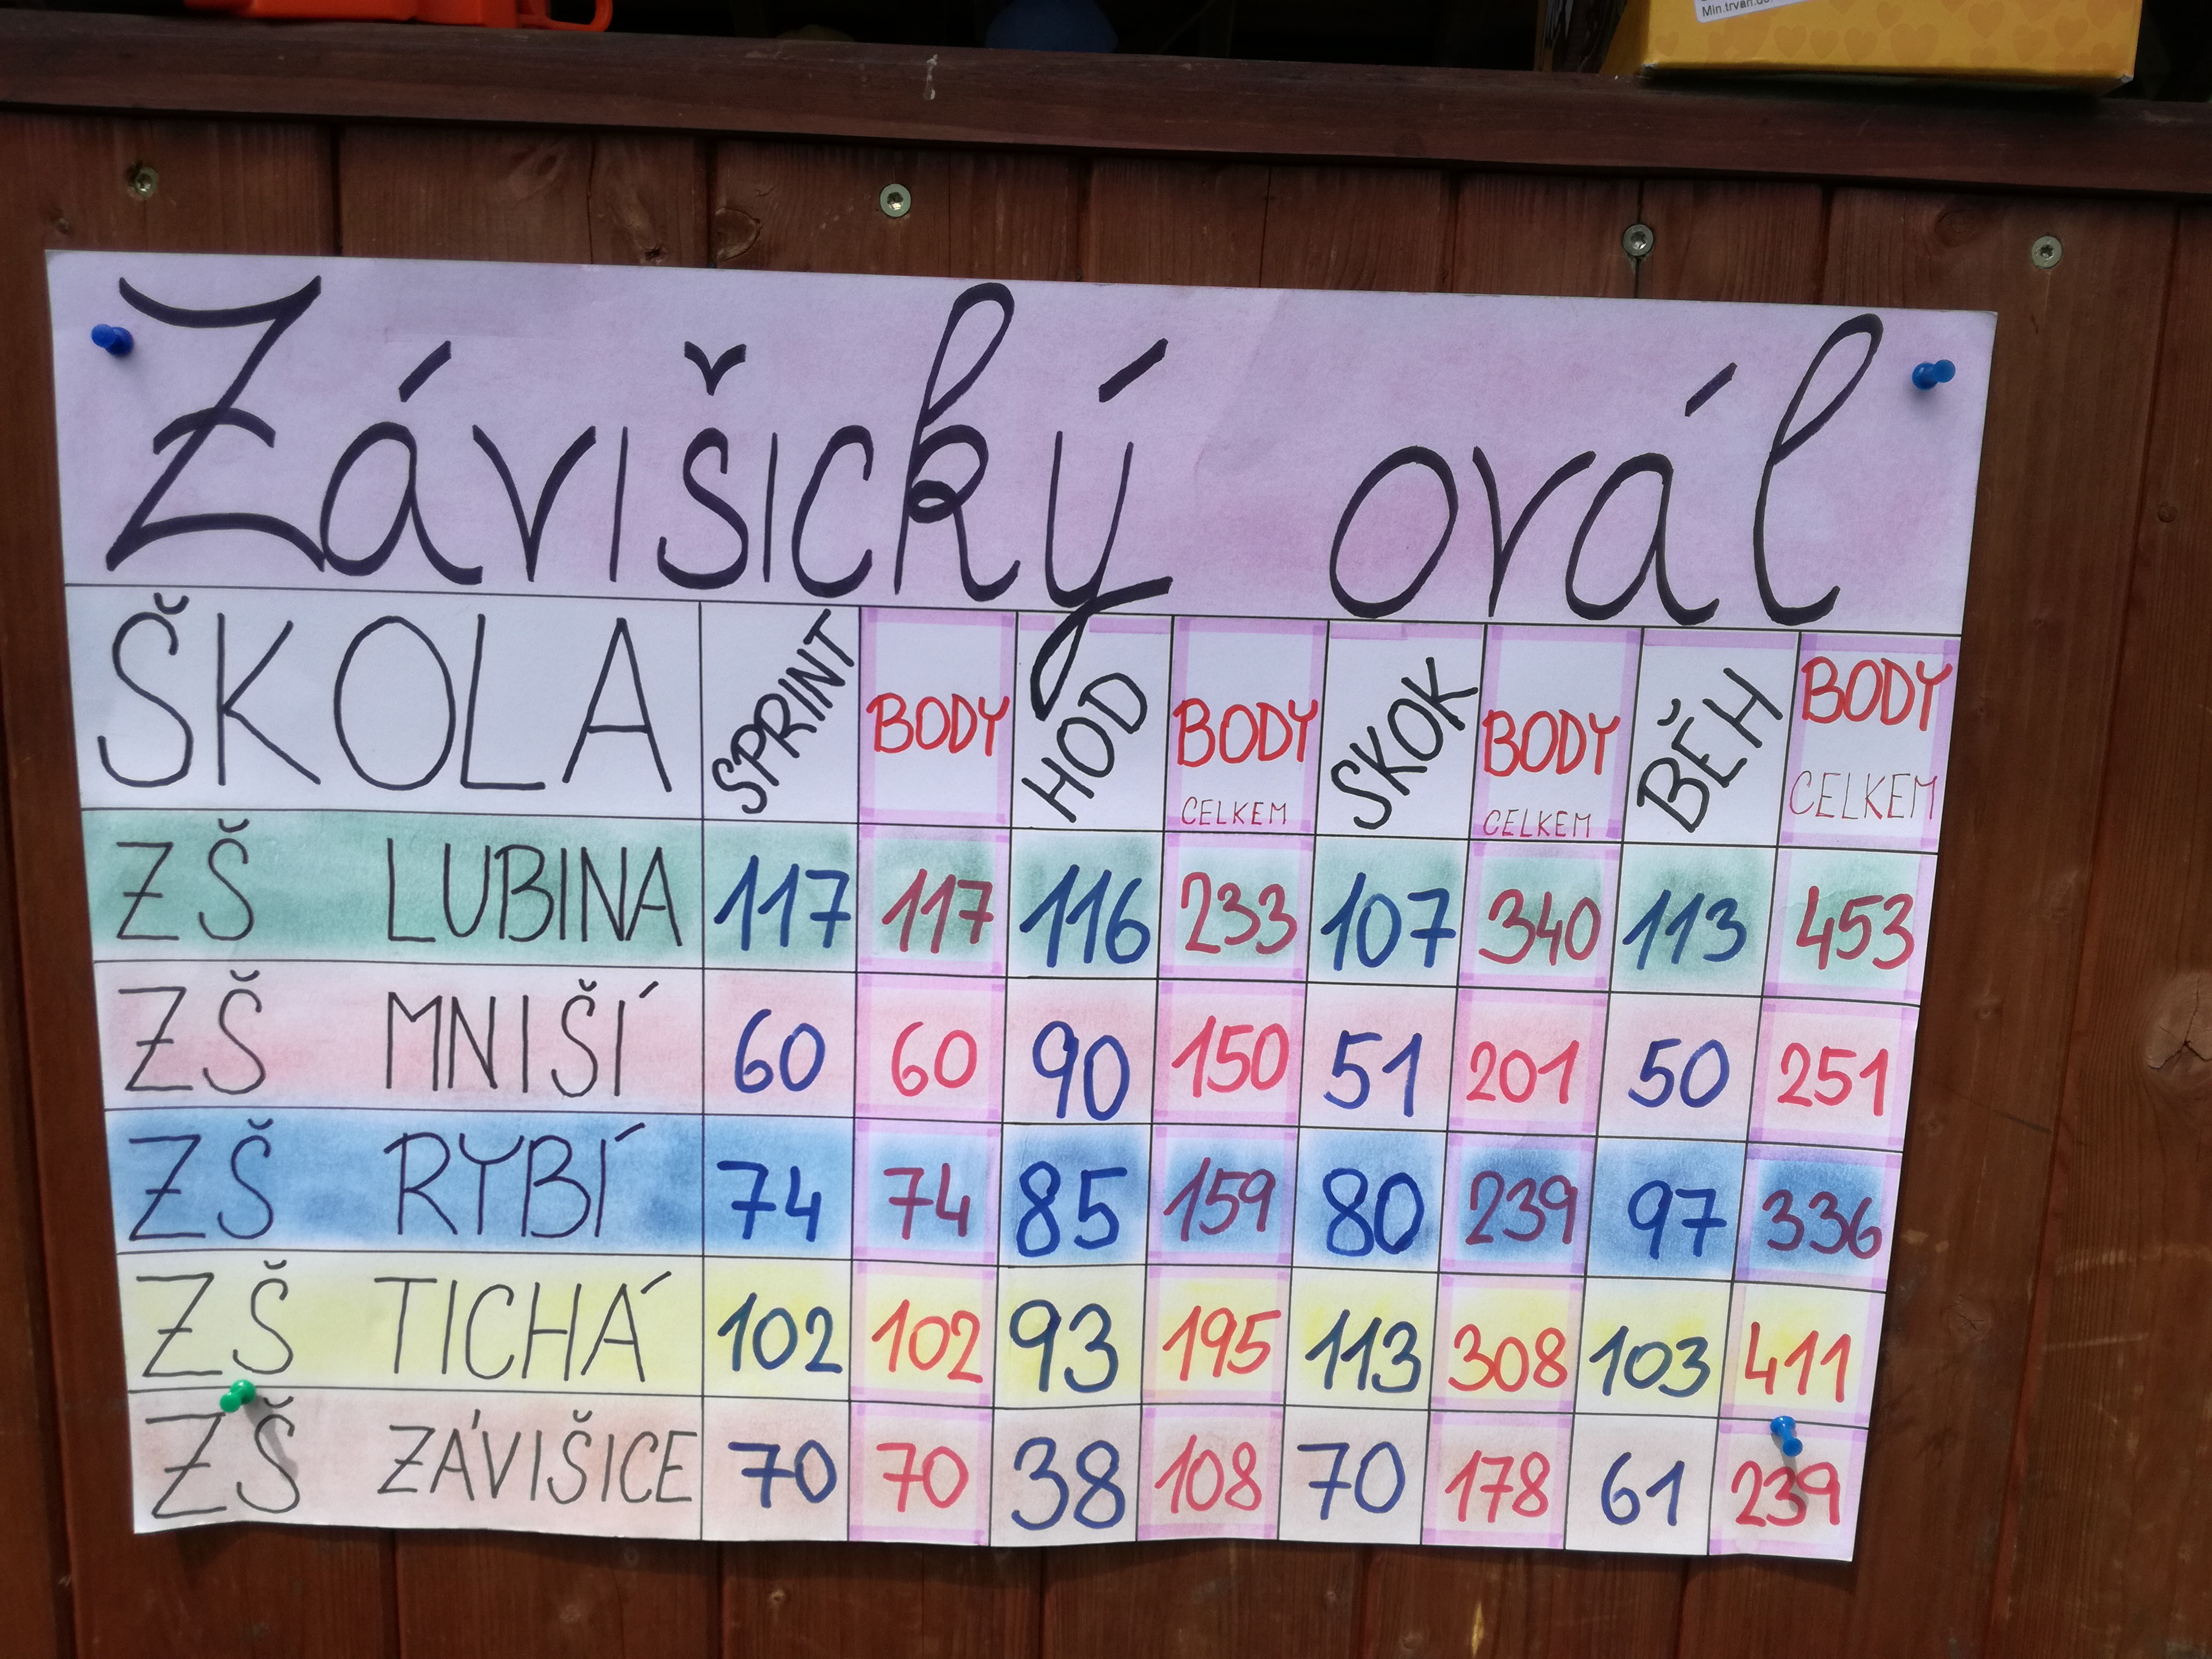 Min.trvan.do
Závišický ovál
ŠKOLA SPRINT BODY HOD BODY CELKEM SKOK BODY CELKEM BĚH BODY CELKEM
ZŠ LUBINA 117 117 116 233 107 340 113 453
ZŠ MNIŠÍ 60 60 90 150 51 201 50 251
ZŠ RYBÍ 74 74 85 159 80 239 97 336
ZŠ TICHÁ 102 102 93 195 113 308 103 411
ZŠ ZÁVIŠICE 70 70 38 108 70 178 61 239